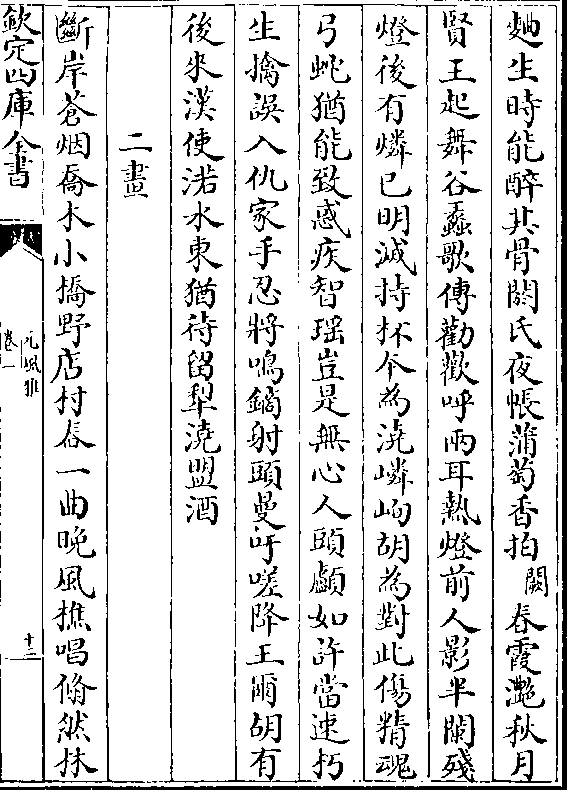 麯生時能醉其骨閼氏夜帳蒲萄香拍闕春霞灎秋月
賢王起舞谷蠡歌傳勸歡呼兩耳熱燈前人影半闌殘
燈後有燐已明滅持杯今為澆嶙峋胡為對此傷精魂
弓蛇猶能致惑疾智瑶豈是無心人頭顱如許當速朽
生擒誤入仇家手忍將鳴鏑射頭曼吁嗟降王爾胡有
後來漢使渃水東猶待留犁澆盟酒
二畫
斷岸蒼烟喬木小橋野店村春一曲晚風樵唱翛然抹
欽定四庫全書
元風雅
卷一
十二